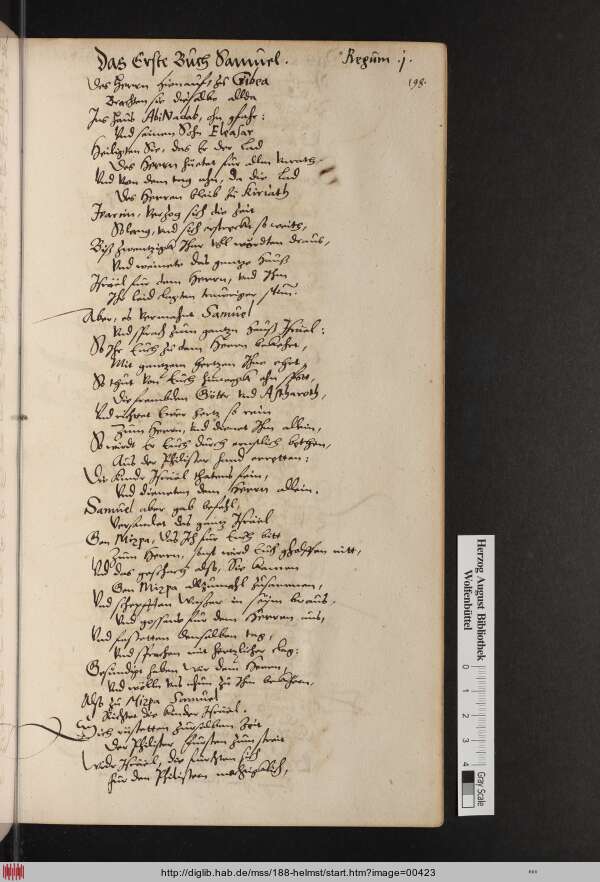 Das Erste Buch Samuel. Regum .j.
198.
Des Herrn hienauff zu Gibea
Brachten sie dieselbe allda
Ins Haus AbiNadab, ohn gfahr:
Und seinen Sohn Eleasar
Heiligten Sie, das Er der Lad
Des Herrn huetet für allm
Und von dem tag ahn, da die Lad
Des Herren blieb zu Kiriath
Jearim, verzog sich die Zeit
So lang, und sich erstrecket so weith,
Biß zwentzigk Jhar voll würdten draus,
Und weinete das gantze Hauß
Israel für dem Herrn, und Ihm
Ihr leid klagten trauriger stim.
Aber, es vermahnt Samuel
Und sprach zum gantzn Hauß Israel:
So Ihr Euch zu dem Herrn bekehret,
Mit gantzem hertzen Ihn ehret,
So thut von Euch hinwegk ohn spott,
Die frembden Götter und Astharoth,
Und richtet Ewer hertz so rein
Zum Herrn, und dienet Ihm allein,
So würdt Er Euch durch
Aus der Philister hand erretten:
Die Kinder Israel thatens fein,
Und dieneten dem Herrn allein.
Samuel aber gab befehl,
Versamlet das gantz Israel
Gen Mizpa, das Ich für Euch bitt
Zum Herrn, sonst wird Euch gholffen nitt,
Und das geschach also, Sie kamen
Gen Mizpa allzumahl zusammen,
Und schepfften Wasser in heraus,
Und gossens für dem Herren aus,
Und fasteten denselben tag,
Und sprachen mit hertzlicher klag:
Gesündigt haben Wir dem Herrn,
Und wölln uns nhun zu Ihm bekehren,
Also zu Mizpa Samuel
Richtet die Kinder Israel.
Sich rüsteten zurselben Zeit
Der Philister Fürsten zum streit
Wider Israel, die furchten sich
für den Philistern
Herzog August Bibliothek
Wolfenbüttel
0 1 2 3 4
Gray Scale
http://diglib.hab.de/mss/188-helmst/start.htm?image=00423